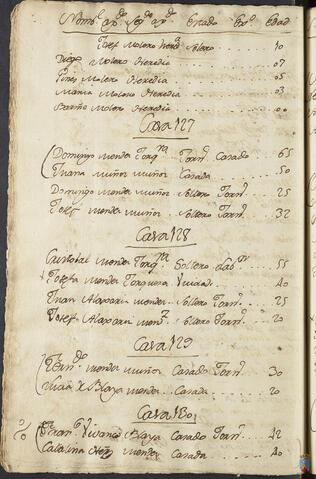 Nomb.e 1º ap.do Seg.do ap.do Estado Exº Edad
Josef Molero Hered.a Soltero . . 10
Diego Molero Heredia . . . . 07
Ines Molero Heredia . . . . 05
Maria Molero Heredia . . . . 03
Molero Heredia . . . . 00
Casa 127
Domingo Mendez Torq.ra Jorn.o Casado . . . 65
Juana Muños Muños Casada . . . . 50
Domingo Mendez Muños Soltero Jorn.o . . 25
Josef Mendez Muños Soltero Jorn.o . . 32
Casa 128
Cristobal Mendez Torq.ra Soltero Lab.or . . 55
Josefa Mendez Torquera Viuda . . . 40
Juan Alaparr Mendez Soltero Jorn.o . . 25
Josef Alaparr Mend.z Soltero Jorn.o . . 20
Casa 129
Fern.do Mendez Muños Casado Jorn.o . . 30
Maria X Blaya Mendez Casada . . . 20
Casa 130
Juan Vivanco Blaya Casado Jorn.o . . 42
Catalina Mendez Casada . . . 40